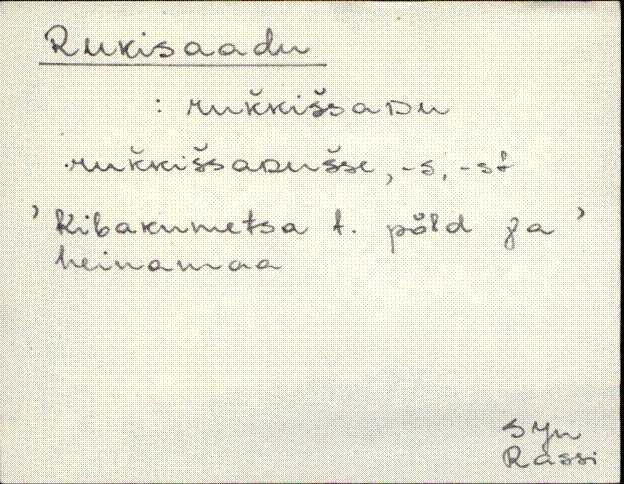 Rukisaadu
: ruk̆kišsaᴅu
ruk̆kišsaᴅušse, -s, -st
' Kibakumetsa t. põld ja '
heinamaa
Syn
Rassi